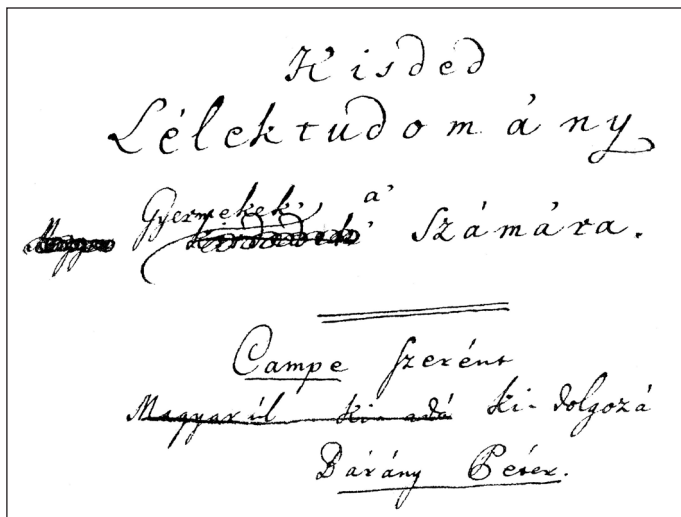 Kisded
Lélektudomány
Gyermekek' a'
Számára.
Campe szerént
Magyarúl ki-adá ki-dolgozá
Bárány Péter.